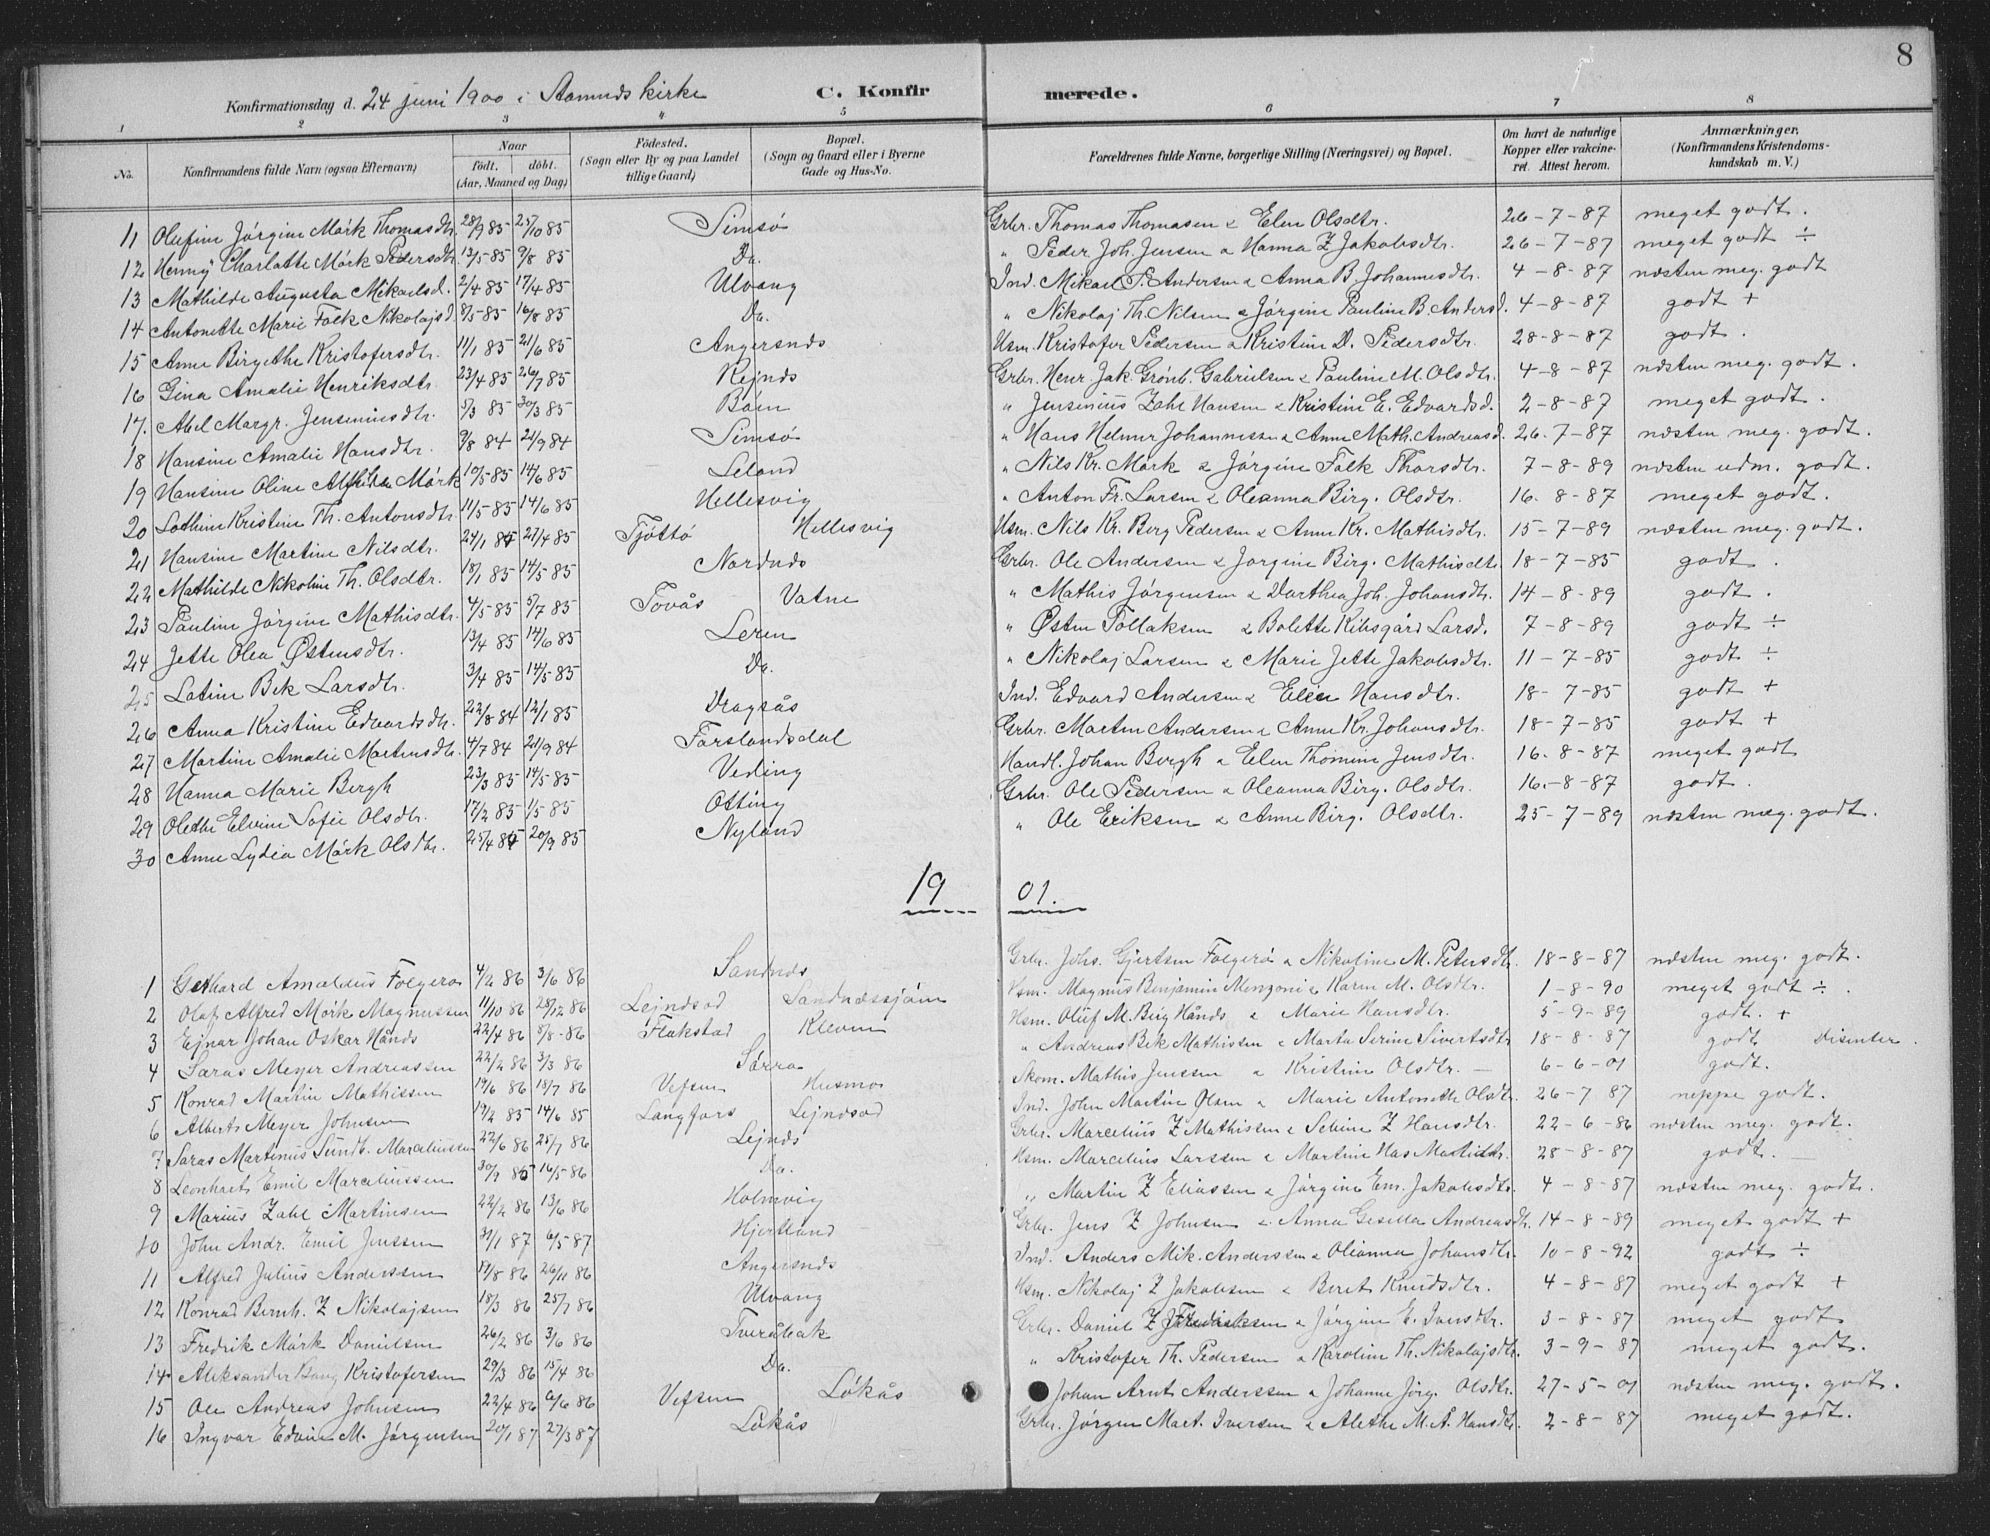 8
Konfirmationsdag d. 24 juni 1900 i Stamnds kirke C. Konfirmerede.
1 2 3 4 5 6 7 8
No. Konfirmandens fulde Navn (ogsaa Efternavn) Naar født. døbt. (Aar, Maaned og Dag) Fødested. (Sogn eller By og paa Landet tillige Gaard) Bopæl. (Sogn og Gaard eller i Byerne Gade og Hus-No. Forældrenes fulde Navne, borgerlige Stilling (Næringsvei) og Bopæl. Om havt de naturlige Kopper eller vaccineret. Attest herom. Anmærkninger, (Konfirmandens Kristendomskundskab m. V.)
11 Olufine Jørgine Mørk Thomasdtr. 28/9 85 25/10 85 Simsø Grbr. Thomas Thomasen & Elen Olsdtr. 26-7-87 meget godt.
12 Henny Charlotte Mørk Pedersdtr. 13/5 85 9/8 85 Do. " Peder Joh. Jensen & Hanna Z Jakobsdtr. 26-7-87 meget godt ÷
13 Mathilde Augusta Mikaelsd. 2/4 85 17/4 85 Ulvang Ind. Mikael P. Andersen & Anna B. Johannesdtr. 4-8-87 næsten meg. godt
14 Antonette Marie Falk Nikolajsd. 8/5 85 16/8 85 Do. " Nikolaj Th. Nilsen & Jørgine Pauline B. Andersd. 4-8-87 godt +
15 Anne Birgethe Kristofersdtr. 11/1 85 21/6 85 Angersnds Hsm. Kristofer Pedersen & Kristine D. Pedersdtr. 28-8-87 godt.
16 Gina Amalie Henriksdtr. 23/4 85 26/7 85 Rejnds Grbr. Henr. Jak. Grønb. Gabrielsen & Pauline M. Olsdtr. 4-8-87 næsten meg. godt.
17. Abel Margr. Jenseniusdtr. 5/3 85 30/3 85 Baen " Jensenius Zahl Hansen & Kristine E. Edvardsd. 2-8-87 meget godt.
18 Hansine Amalie Hansdtr. 9/8 84 21/9 84 Simsø " Hans Helmer Johannessen & Anne Math. Andreasd. 26-7-87 næsten meg. godt.
19 Hansine Oline Mørk 10/5 85 14/6 85 Leland " Nils Kr. Mørk & Jørgine Falk Thorsdtr. 7-8-89 næsten udm. godt.
20 Kristine Th. Antonsdtr. 11/5 85 14/6 85 Hellesvig " Anton Fr. Larsen & Oleanna Birg. Olsdtr. 16-8-87 meget godt.
21 Hansine Martine Nilsdtr. 24/1 85 21/4 85 Tjøttø Hellesvig Hsm. Nils Kr. Berg Pedersen & Anne Kr. Mathisdtr. 15-7-89 næsten meg. godt.
22 Mathilde Nikoline Th. Olsdtr. 18/1 85 14/5 85 Nordnds Grbr. Ole Andersen & Jørgine Birg. Mathisdtr. 18-7-85 godt.
23 Pauline Jørgine Mathisdtr. 4/5 85 5/7 85 Tovås Vatne " Mathis Jørgensen & Dorthea Joh. Johansdtr. 14-8-89 godt.
24 Jette Olea Østensdtr. 13/4 85 14/6 85 Leren " Østen Tollaksen & Bolette Kibsgård Larsd. 7-8-89 godt ÷
25 Latine Bek Larsdtr. 3/4 85 14/5 85 Do. " Nikolaj Larsen & Marie Jette Jakobsdtr. 11-7-85 godt ÷
26 Anna Kristine Edvardsdtr. 22/8 84 12/1 85 Dragsås Ind. Edvard Andersen & Elen Hansdtr. 18-7-85 godt +
27 Martine Amalie Martensdtr. 4/7 84 21/9 84 Forslandsdal Grbr. Marten Andersen & Anne Kr. Johansdtr. 18-7-85 godt +
28 Hanna Marie Bergh 23/3 85 14/5 85 Veding Handl. Johan Bergh & Elen Thomine Jensdtr. 16-8-87 meget godt
29 Olethe Elvine Sofie Olsdtr. 17/2 85 1/5 85 Otting Grbr. Ole Pedersen & Oleanna Birg. Olsdtr. 16-8-87 godt.
30 Anne Lydia Mørk Olsdtr. 25/4 85 20/9 85 Nyland " Ole Eriksen & Anne Birg. Olsdtr. 25-7-89 næsten meg. godt.
1901.
1 Gethard Arnoldus Folgerø 4/2 86 3/6 86 Sandnds Grbr. Johs. Gjertsen Folgerø & Nikoline M. Petersdtr. 18-8-87 næsten meg. godt.
2 Olaf Alfred Mørk Magnussen 11/10 86 28/12 86 Lejndsod Sandnæssjøen Hsm. Magnus Benjamin Menzoni & Karen M. Olsdtr. 1-8-90 meget godt ÷.
3 Ejnar Johan Oskar Hånds 22/4 86 8/8 86 Flakstad Kleven Hsm. Oluf M. Birg Hånds & Marie Hansdtr. 5-9-89 godt. +
4 Saras Meyer Andreassen 22/2 86 3/3 86 Sørra " Andreas Bek Mathissen & Marta Serine Sivertsdtr 18-8-87 godt Disenter.
5 Konrad Martin Mathissen 19/6 86 18/7 86 Vefsen Husmo Skom. Mathis Jenssen & Kristine Olsdtr. — 6-6-01 godt.
6 Alberts Meyer Johnsen 19/2 85 14/6 85 Langfors Lejndsod Ind. John Martin Olsen & Marie Antonette Olsdtr. 26-7 87 neppe godt.
7 Saras Martinus Sundb. Marceliussen 22/6 86 25/7 86 Lejnds Grbr. Marcelius Z Mathissen & Seline Z Hansdtr. 22-6-86 næsten meg. godt.
8 Leonhret Emil Marceliussen 30/9 85 16/5 86 Do. Hsm. Marcelius Larssen & Martine 28-8-87 godt. —
9 Marius Zahl Martinsen 22/2 86 13/6 86 Holmvig " Martin Z Eliassen & Jørgine Em. Jakobsdtr. 4-8-87 næsten meg. godt.
10 John Andr. Emil Jenssen 31/1 87 6/5 87 Hjertland Grbr. Jens Z Johnsen & Anna Gesella Andreasdtr. 14-8-89 meget godt +
11 Alfred Julius Anderssen 17/8 86 26/11 86 Angersnds Ind. Anders Mik. Anderssen & Oleanna Johansdtr. 10-8-92 godt ÷
12 Konrad Bernh. Z Nikolajsen 18/3 86 25/7 86 Ulvang Hsm. Nikolaj Z Jakobsen & Beret Knudsdtr. 4-8-87 meget godt +
13 Fredrik Mørk Danielsen 26/2 86 3/6 86 Tveråbak Grbr. Daniel Z Fredriksen & Jørgine E. Iversdtr. 3-8-87 meget godt
14 Aleksander Bang Kristofersen 29/3 86 15/4 86 Do. " Kristofer Th. Pedersen & Karoline Th. Nikolajsdtr. 3-9-87 meget godt.
15 Ole Andreas Johnsen 22/4 86 6/6 86 Vefsen Løkås Johan Arnt Anderssen & Johanne Jørg. Olsdtr. 27-5-01 næsten meg. godt.
16 Ingvar Edvin M. Jørgensen 20/1 87 27/3 87 Løkås Grbr. Jørgen Mart. Iversen & Alethe M. A. Hansdtr. 2-8-87 meget godt.